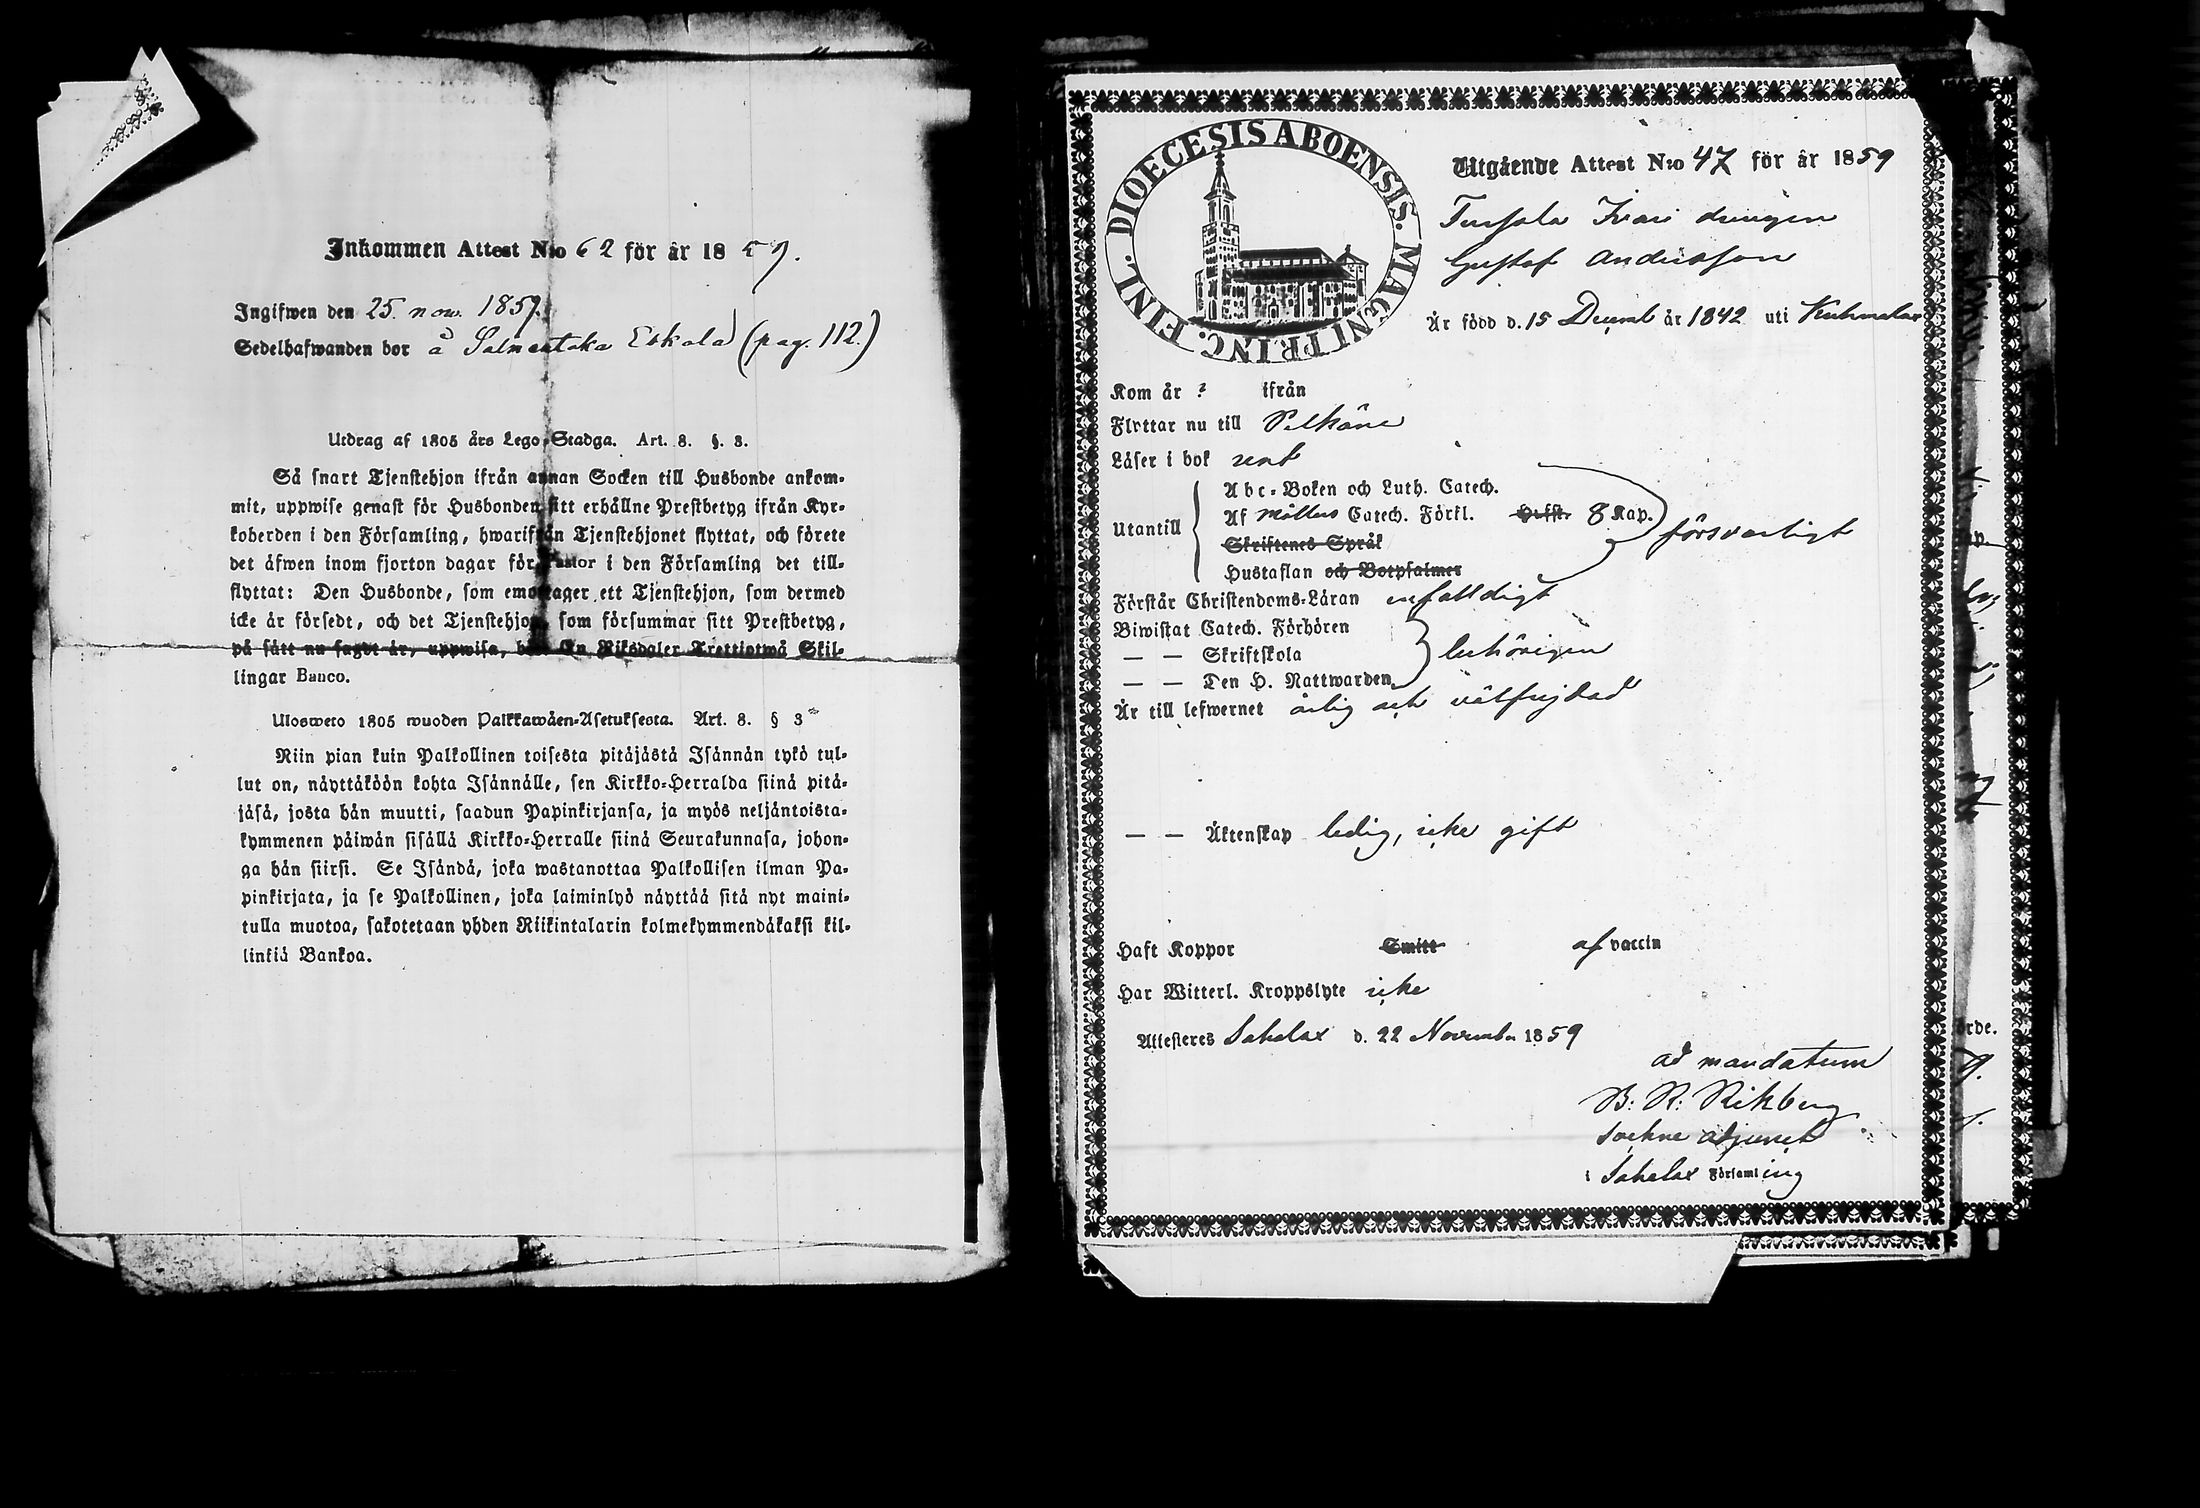 Inkommen Attest N:o 62 för år 1859.
Ingifwen den 25. nov. 1859.
Sedelhafwanden bor å Salmentaka Eskola (pag. 112.)
Utdrag af 1805 års Lego-Stadga. Art. 8. §. 3.
Så snart Tjenstehjon ifrån annan Socken till Husbonde ankom-
mit, uppwise genast för Husbonden sitt erhållne Prestbetyg ifrån Kyr-
koherden i den Församling, hwarifrån Tjenstehjonet flyttat, och förete
det äfwen inom fjorton dagar för Pastor i den Församling det till-
flyttat: Den Husbonde, som emottager ett Tjenstehjon, som dermed
icke är försedt, och det Tjenstehjon, som försummar sitt Prestbetyg,
på sätt nu sagdt är, uppwisa, böte En Riksdaler Trettiotwå Skil-
lingar Banco.
Ulosweto 1805 wuoden Palkkawäen-Asetuksesta. Art. 8. § 3
Niin pian kuin Palkollinen toisesta pitäjästä Isännän tykö tul-
lut on, näyttäköön kohta Isännälle, sen Kirkko-Herralda siinä pitä-
jäsä, josta hän muutti, saadun Papinkirjansa, ja myös neljäntoista-
kymmenen päiwän sisällä Kirkko-Herralle siinä Seurakunnasa, johon-
ga hän siirsi. Se Isändä, joka wastanottaa Palkollisen ilman Pa-
pinkirjata, ja se Palkollinen, joka laiminlyö näyttää sitä nyt maini-
tulla muotoa, sakotetaan yhden Riikintalarin kolmekymmendäkaksi kil-
linkiä Bankoa.
DIOECESIS ABOENSIS. MAGNI PRINC. FINL.
Utgående Attest N:o 47 för år 1859
drängen
Gustaf Andersson
Är född d. 15 Decemb år 1842 uti Kuhmalax
Kom år ? ifrån
Flyttar nu till Pelkäne
Läser i bok rent
Utantill
Abc-Boken och Luth. Catech.
Af Möllers Catech. Förkl. Hufst. 8 Kap.
Skriftenes Språk
Hustaflan och Botpsalmer
försvarligt
Förstår Christendoms-Läran enfalldigt
Biwistat Catech. Förhören
— — Skriftskola
— — Den H. Nattwarden
behörigen
Är till lefwernet ärlig och välfrejdad
— — Äktenskap ledig, icke gift
Haft Koppor Smitt af vaccin
Har Witterl. Kroppslyte icke
Attesteres Sahalax d. 22 November 1859
ad mandatum
B: R: Rikberg
Sockne adjunct
i Sahalax Församling